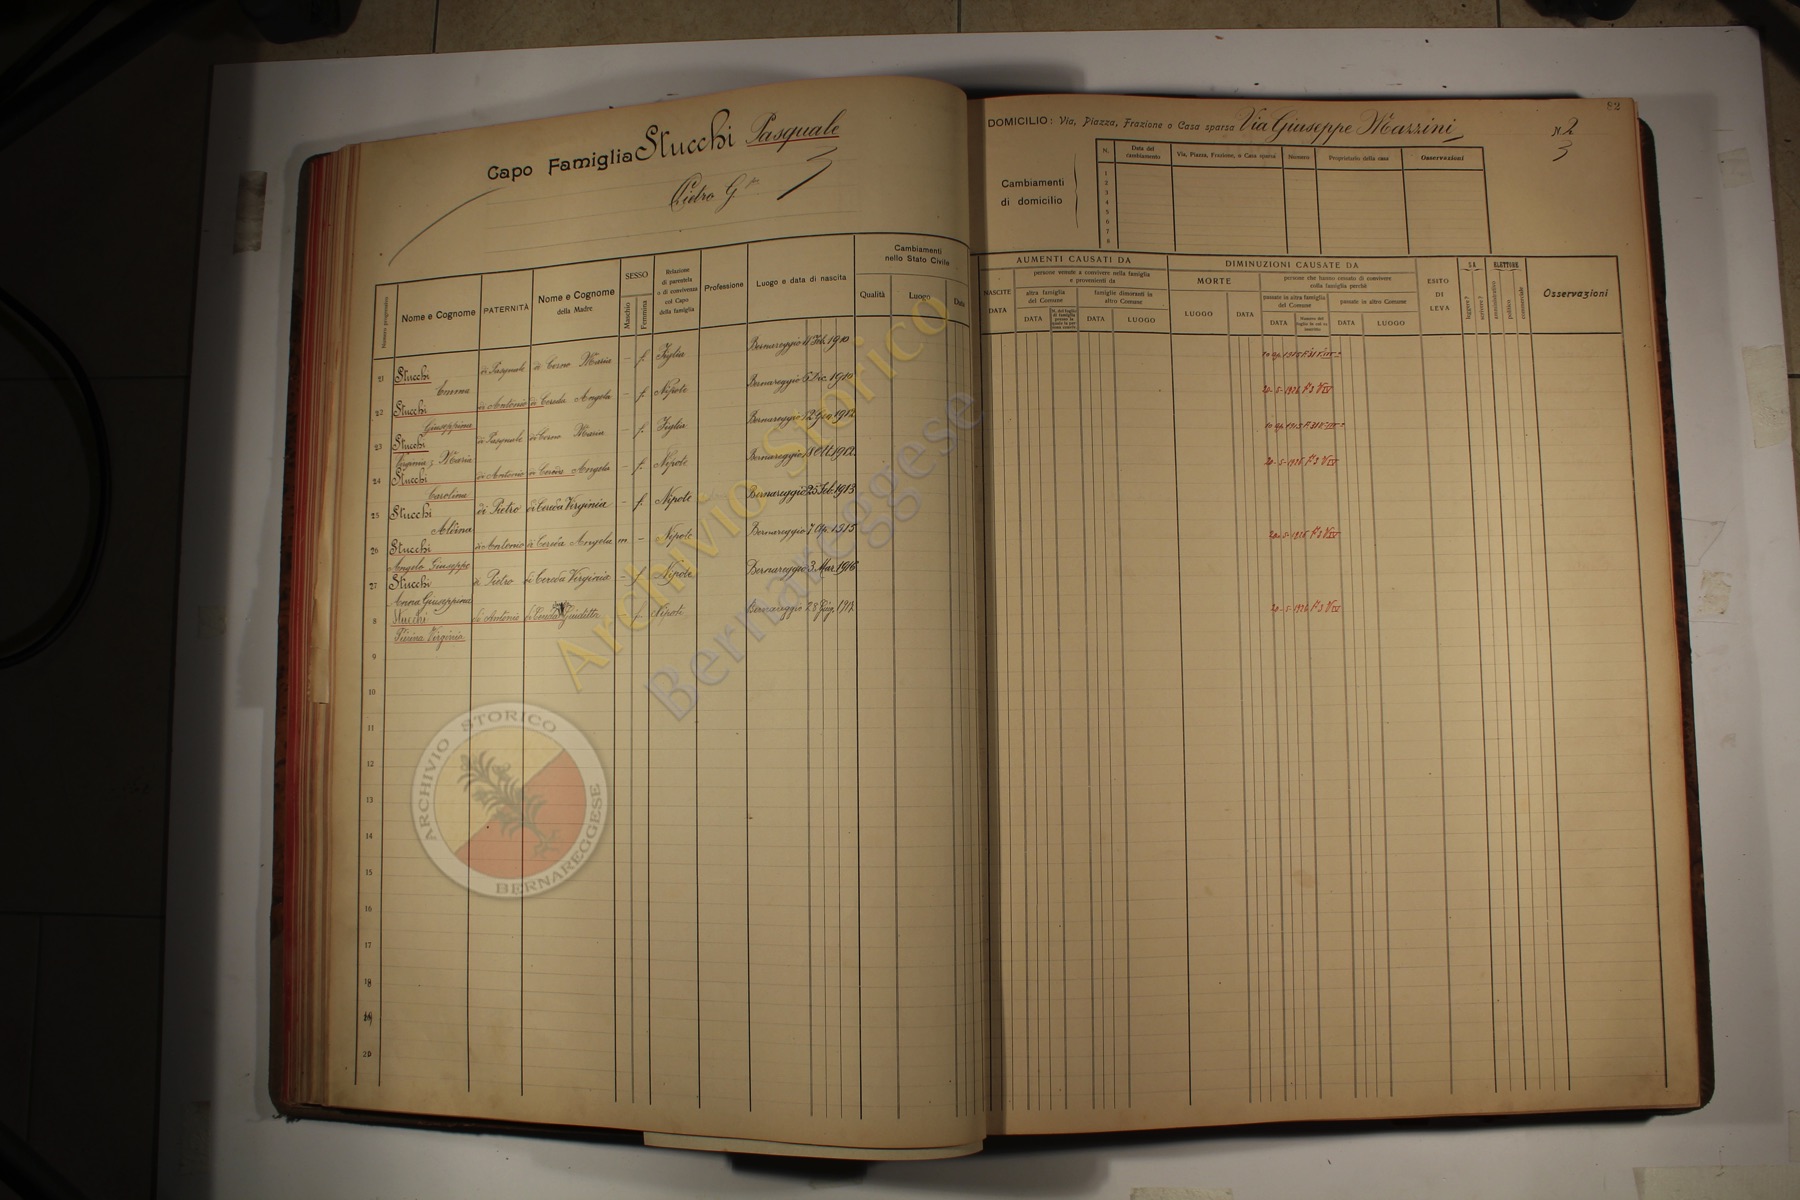 82
Capo Famiglia Stucchi Pasquale
Pietro G.
3
DOMICILIO: Via, Piazza, Frazione o Casa sparsa Via Giuseppe Mazzini
N. 2
3
Cambiamenti
di domicilio
N.
Data del cambiamento
Via, Piazza, Frazione, o Casa sparsa
Numero
Proprietario della casa
Osservazioni
1
2
3
4
5
6
7
8
Numero progressivo
Nome e Cognome
PATERNITÀ
Nome e Cognome
della Madre
SESSO
Maschio
Femmina
Relazione
di parentela
o di convivenza
col Capo
della famiglia
Professione
Luogo e data di nascita
Cambiamenti
nello Stato Civile
Qualità
Luogo
Data
AUMENTI CAUSATI DA
NASCITE
DATA
persone venute a convivere nella famiglia
e provenienti da
altra famiglia
del Comune
famiglie dimoranti in
altro Comune
DATA
DATA
LUOGO
DIMINUZIONI CAUSATE DA
MORTE
LUOGO
DATA
persone che hanno cessato di convivere
colla famiglia perchè
passate in altra famiglia
del Comune
passate in altro Comune
DATA
DATA
LUOGO
ESITO
DI
LEVA
SA
leggere?
scrivere?
ELETTORE
amministrativo
politico
commerciale
Osservazioni
21 Stucchi di Pasquale di Cerno Maria - f. Figlia Bernareggio 4 Feb. 1910
Emma
22 Stucchi di Antonio di Cereda Angela - f. Nipote Bernareggio 6 Dic. 1910 20-5-1926 F°3 VIV
Giuseppina
23 Stucchi di Pasquale di Cerno Maria - f. Figlia Bernareggio 12 Gen 1912
Virginia Maria
24 Stucchi di Antonio di Cereda Angela - f. Nipote Bernareggio 18 Ott. 1912 20-5-1926 F°3 VIV
Carolina
25 Stucchi di Pietro di Cereda Virginia - f. Nipote Bernareggio 25 Feb. 1913
Alvina
26 Stucchi di Antonio di Cereda Angela m - Nipote Bernareggio 7 Ap. 1915 20-5-1926 F°3 VIV
Angelo Giuseppe
27 Stucchi di Pietro di Cereda Virginia - f Nipote Bernareggio 3 Mar. 1916
Anna Giuseppina
8 Stucchi di Antonio di Cereda Giuditta f Nipote Bernareggio 28 Giug. 20-5-1926 F°3 VIV
Pierina Virginia
9
10
11
12
13
14
15
16
17
18
19
20
Archivio Storico
Bernareggese
ARCHIVIO STORICO
BERNAREGGESE